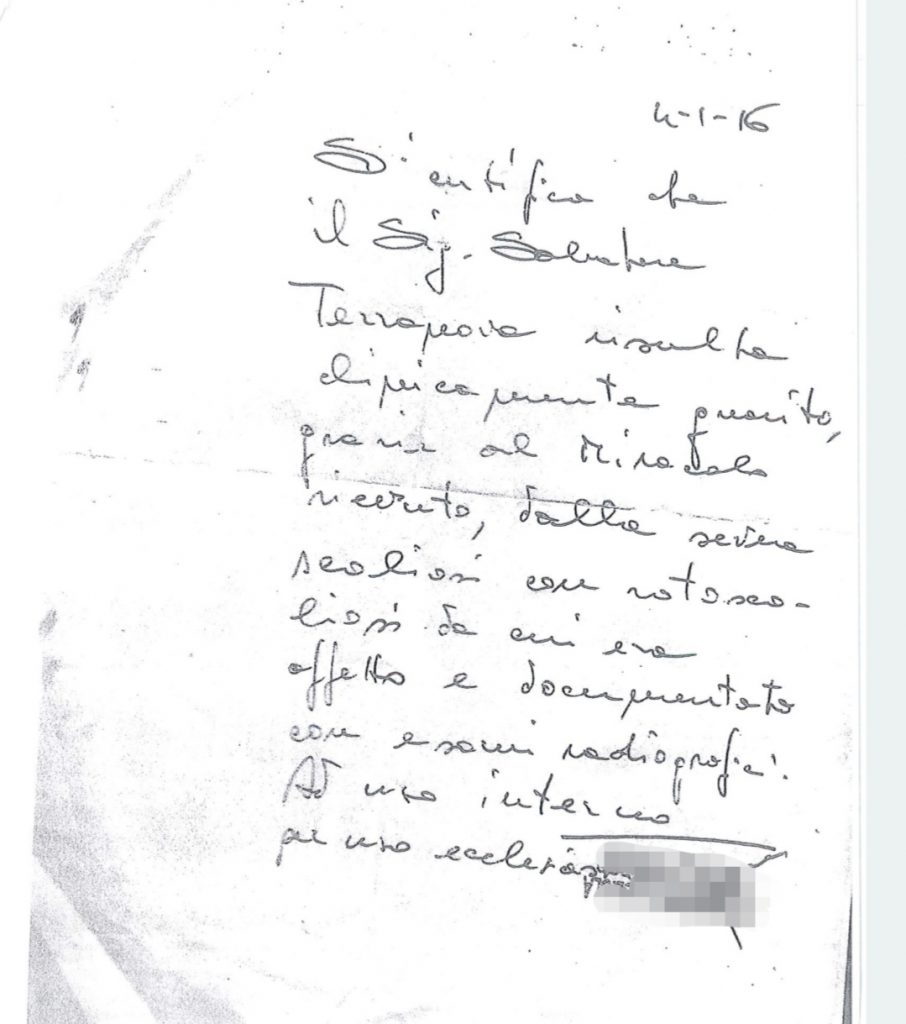 4-1-16
Si certifica che
il Sig. Salvatore
Terranova risulta
clinicamente guarito,
grazie al Miracolo
ricevuto, dalla severa
scoliosi con rotosco-
liosi da cui era
affetto e documentato
con esami radiografici.
Ad uso interno
per uso